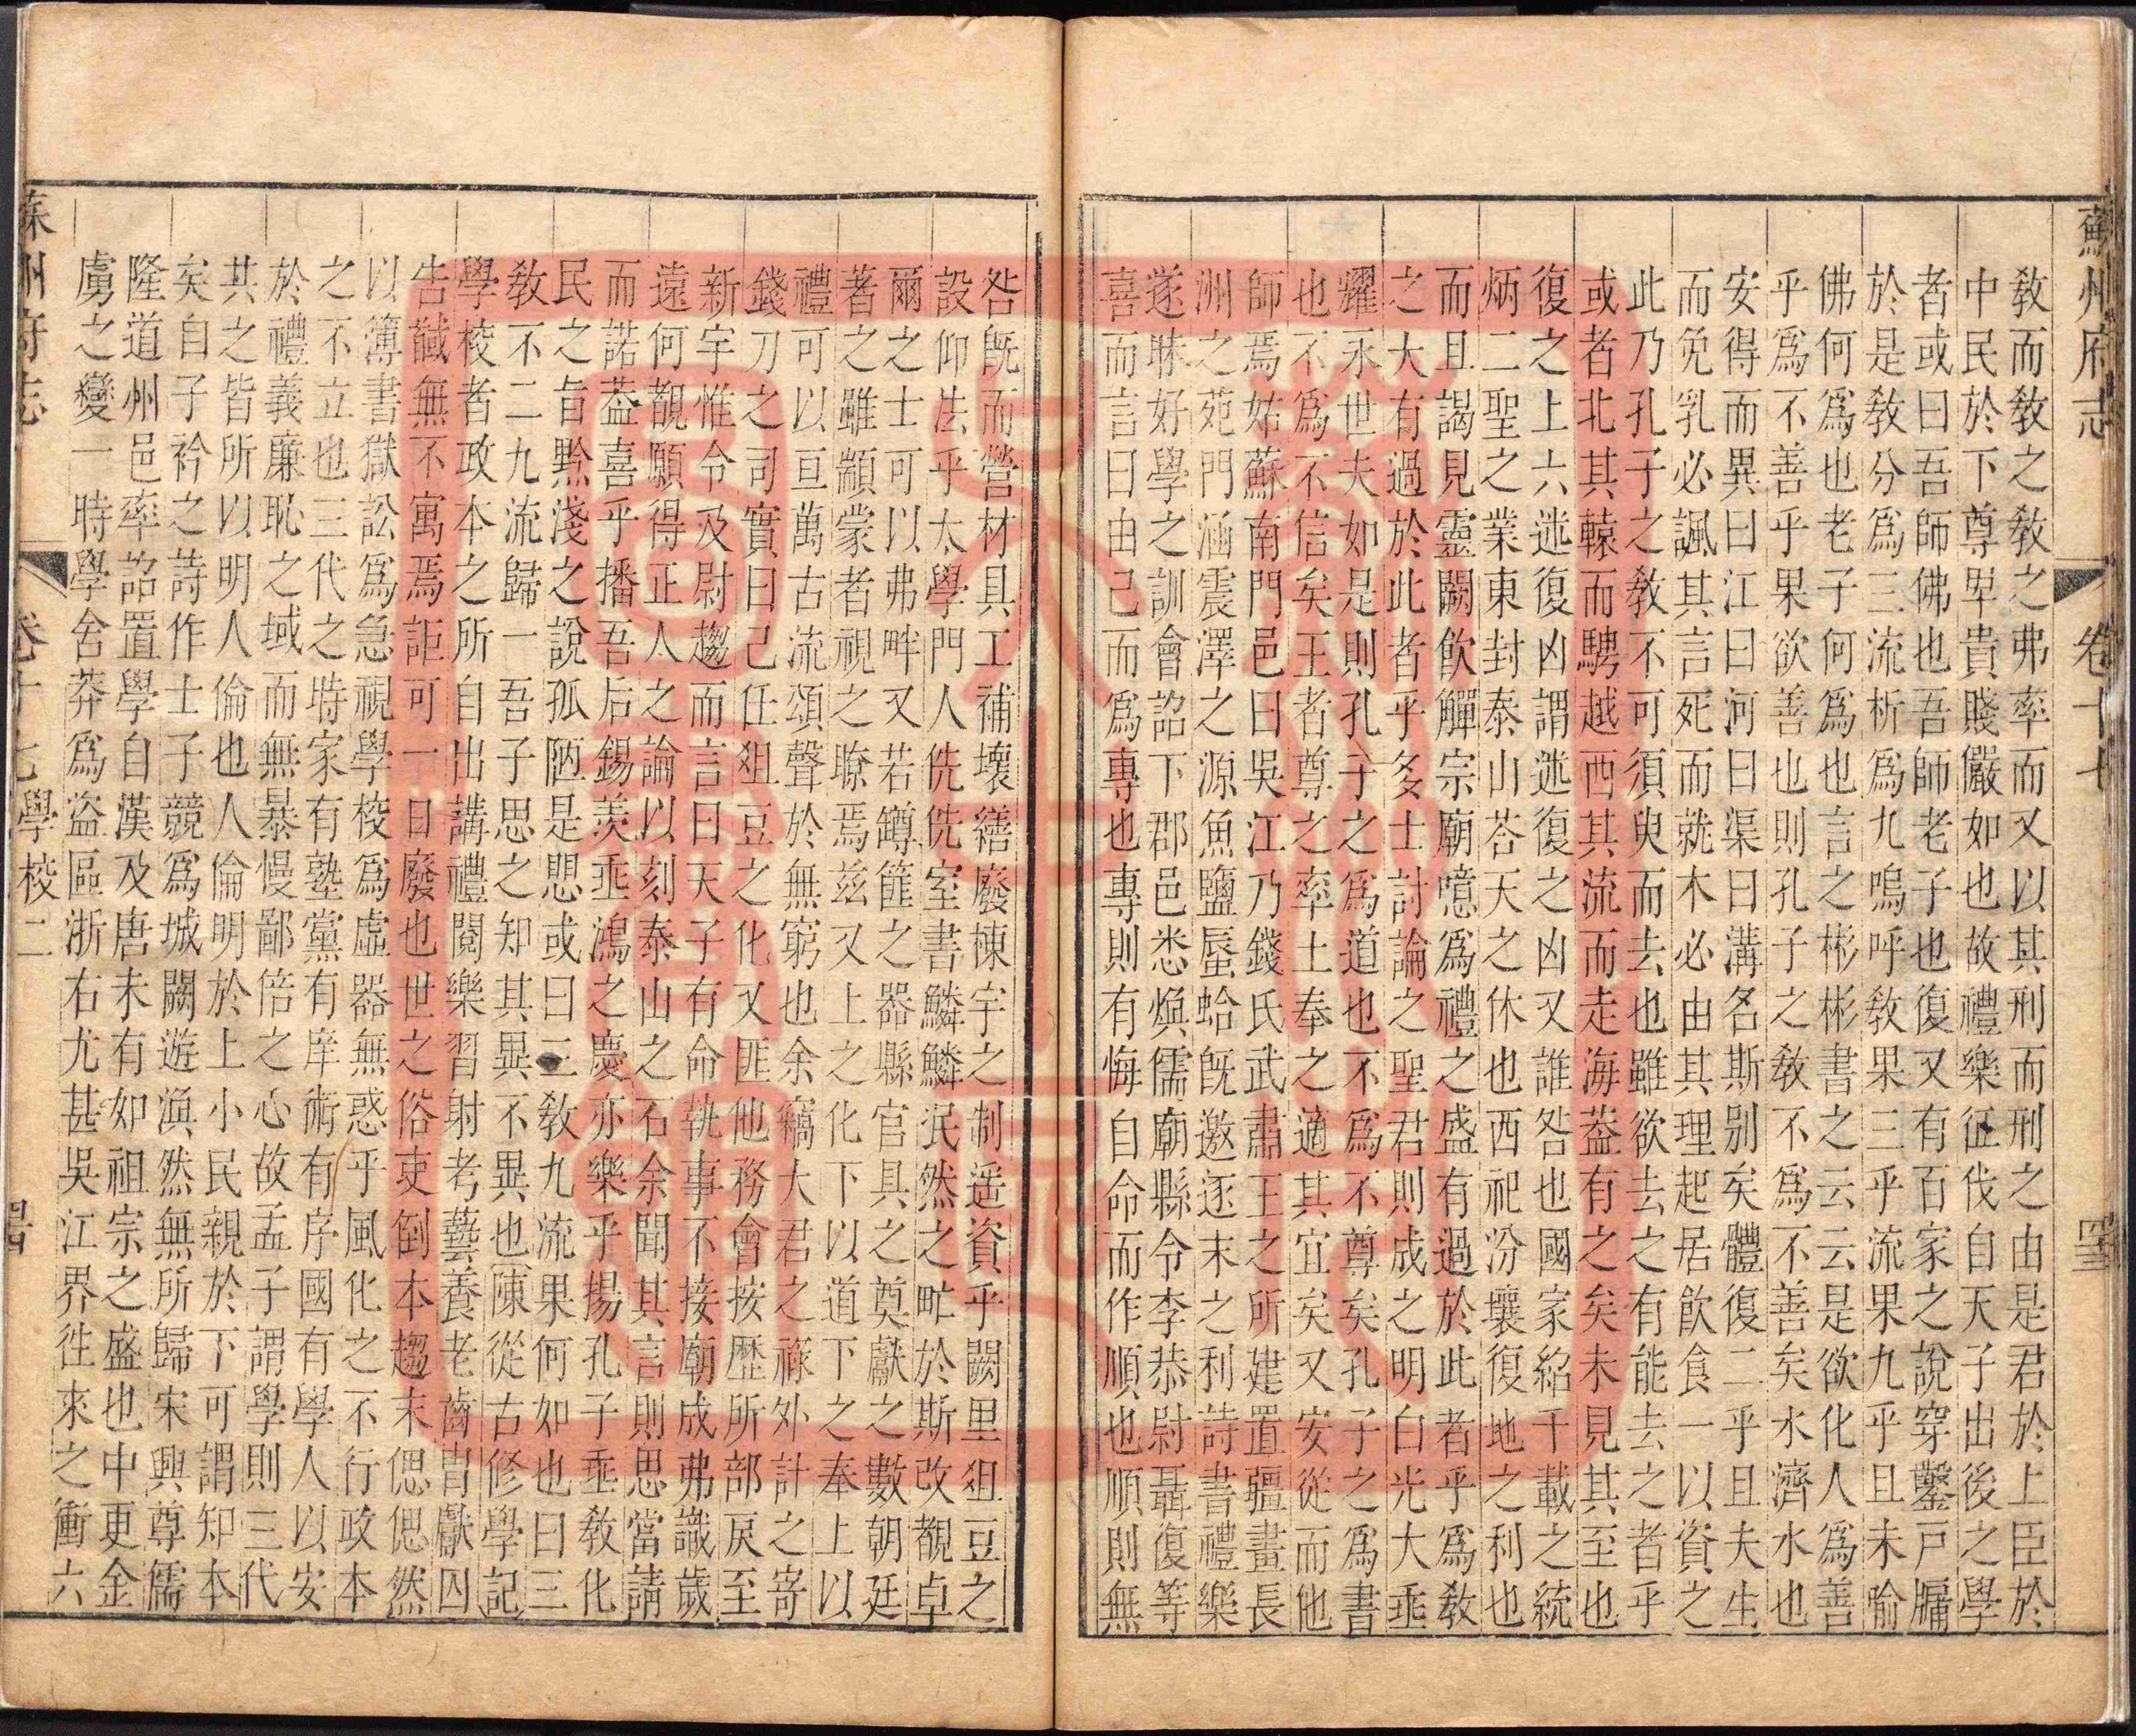 蘇州府志 卷十七
教而教之教之弗率而又以其刑而刑之由是君於上臣於
中民於下尊卑貴賤儼如也故禮樂征伐自天子出後之學
者或曰吾師佛也吾師老子也復又有百家之說穿鑿戸牖
於是教分爲三流析爲九嗚呼教果三乎流果九乎且未喻
佛何爲也老子何爲也言之彬彬書之云云是欲化人爲善
乎爲不善乎果欲善也則孔子之教不爲不善矣水濟水也
安得而異曰江曰河曰渠曰溝名斯别矣體復二乎且夫生
而免乳必諷其言死而就木必由其理起居飲食一以資之
此乃孔子之教不可須臾而去也雖欲去之有能去之者乎
或者北其轅而騁越西其流而走海葢有之矣未見其至也
復之上六迷復凶謂迷復之凶又誰咎也國家紹千載之統
炳二聖之業東封泰山荅天之休也西祀汾壤復地之利也
而且謁見靈闕飲觶宗廟噫爲禮之盛有過於此者乎爲教
之大有過於此者乎多士討論之聖君則成之明白光大垂
耀永世夫如是則孔子之爲道也不爲不尊矣孔子之爲書
也不爲不信矣王者尊之率土奉之適其宜矣又安從而他
師焉姑蘇南門邑曰吳江乃錢氏武肅王之所建置疆畫長
洲之苑門涵震澤之源魚鹽蜃蛤既邀逐末之利詩書禮樂
遂昧好學之訓會詔下郡邑悉煥儒廟縣令李恭尉聶復等
喜而言曰由己而爲專也專則有悔自命而作順也順則無
咎旣而營材具工補壞繕廢棟宇之制遥資乎闕里俎豆之
設仰法乎太學門人侁侁室書鱗鱗泯然之甿於斯改觀卓
爾之士可以弗畔又若罇篚之器縣官具之奠獻之數朝廷
著之雖顓蒙者視之瞭焉茲又上之化下以道下之奉上以
禮可以亘萬古流頌聲於無窮也余竊大君之祿外計之寄
錢刀之司實曰己任俎豆之化又匪他務會按歷所部戾至
新宇惟令及尉趨而言曰天子有命執事不接廟成弗識歲
遠何觀願得正人之論以刻泰山之石余聞其言則思當請
而諾葢喜乎播吾后錫羨垂鴻之慶亦樂乎揚孔子垂教化
民之旨黔淺之說孤陋是愳或曰三教九流果何如也曰三
教不二九流歸一吾子思之知其異不異也陳從古修學記
學校者政本之所自出講禮閱樂習射考藝養老齒胄獻囚
告馘無不寓焉詎可一日廢也世之俗吏倒本趨末偲偲然
以簿書獄訟爲急視學校爲虛器無惑乎風化之不行政本
之不立也三代之時家有塾黨有庠術有序國有學人以安
於禮義廉恥之域而無暴慢鄙倍之心故孟子謂學則三代
共之皆所以明人倫也人倫明於上小民親於下可謂知本
矣自子衿之詩作士子競爲城闕遊渙然無所歸宋興尊儒
隆道州邑率詔置學自漢及唐未有如祖宗之盛也中更金
虜之變一時學舍莽爲盜區浙右尤甚吳江界徃來之衝六
蘇州府志 卷十七 學校二